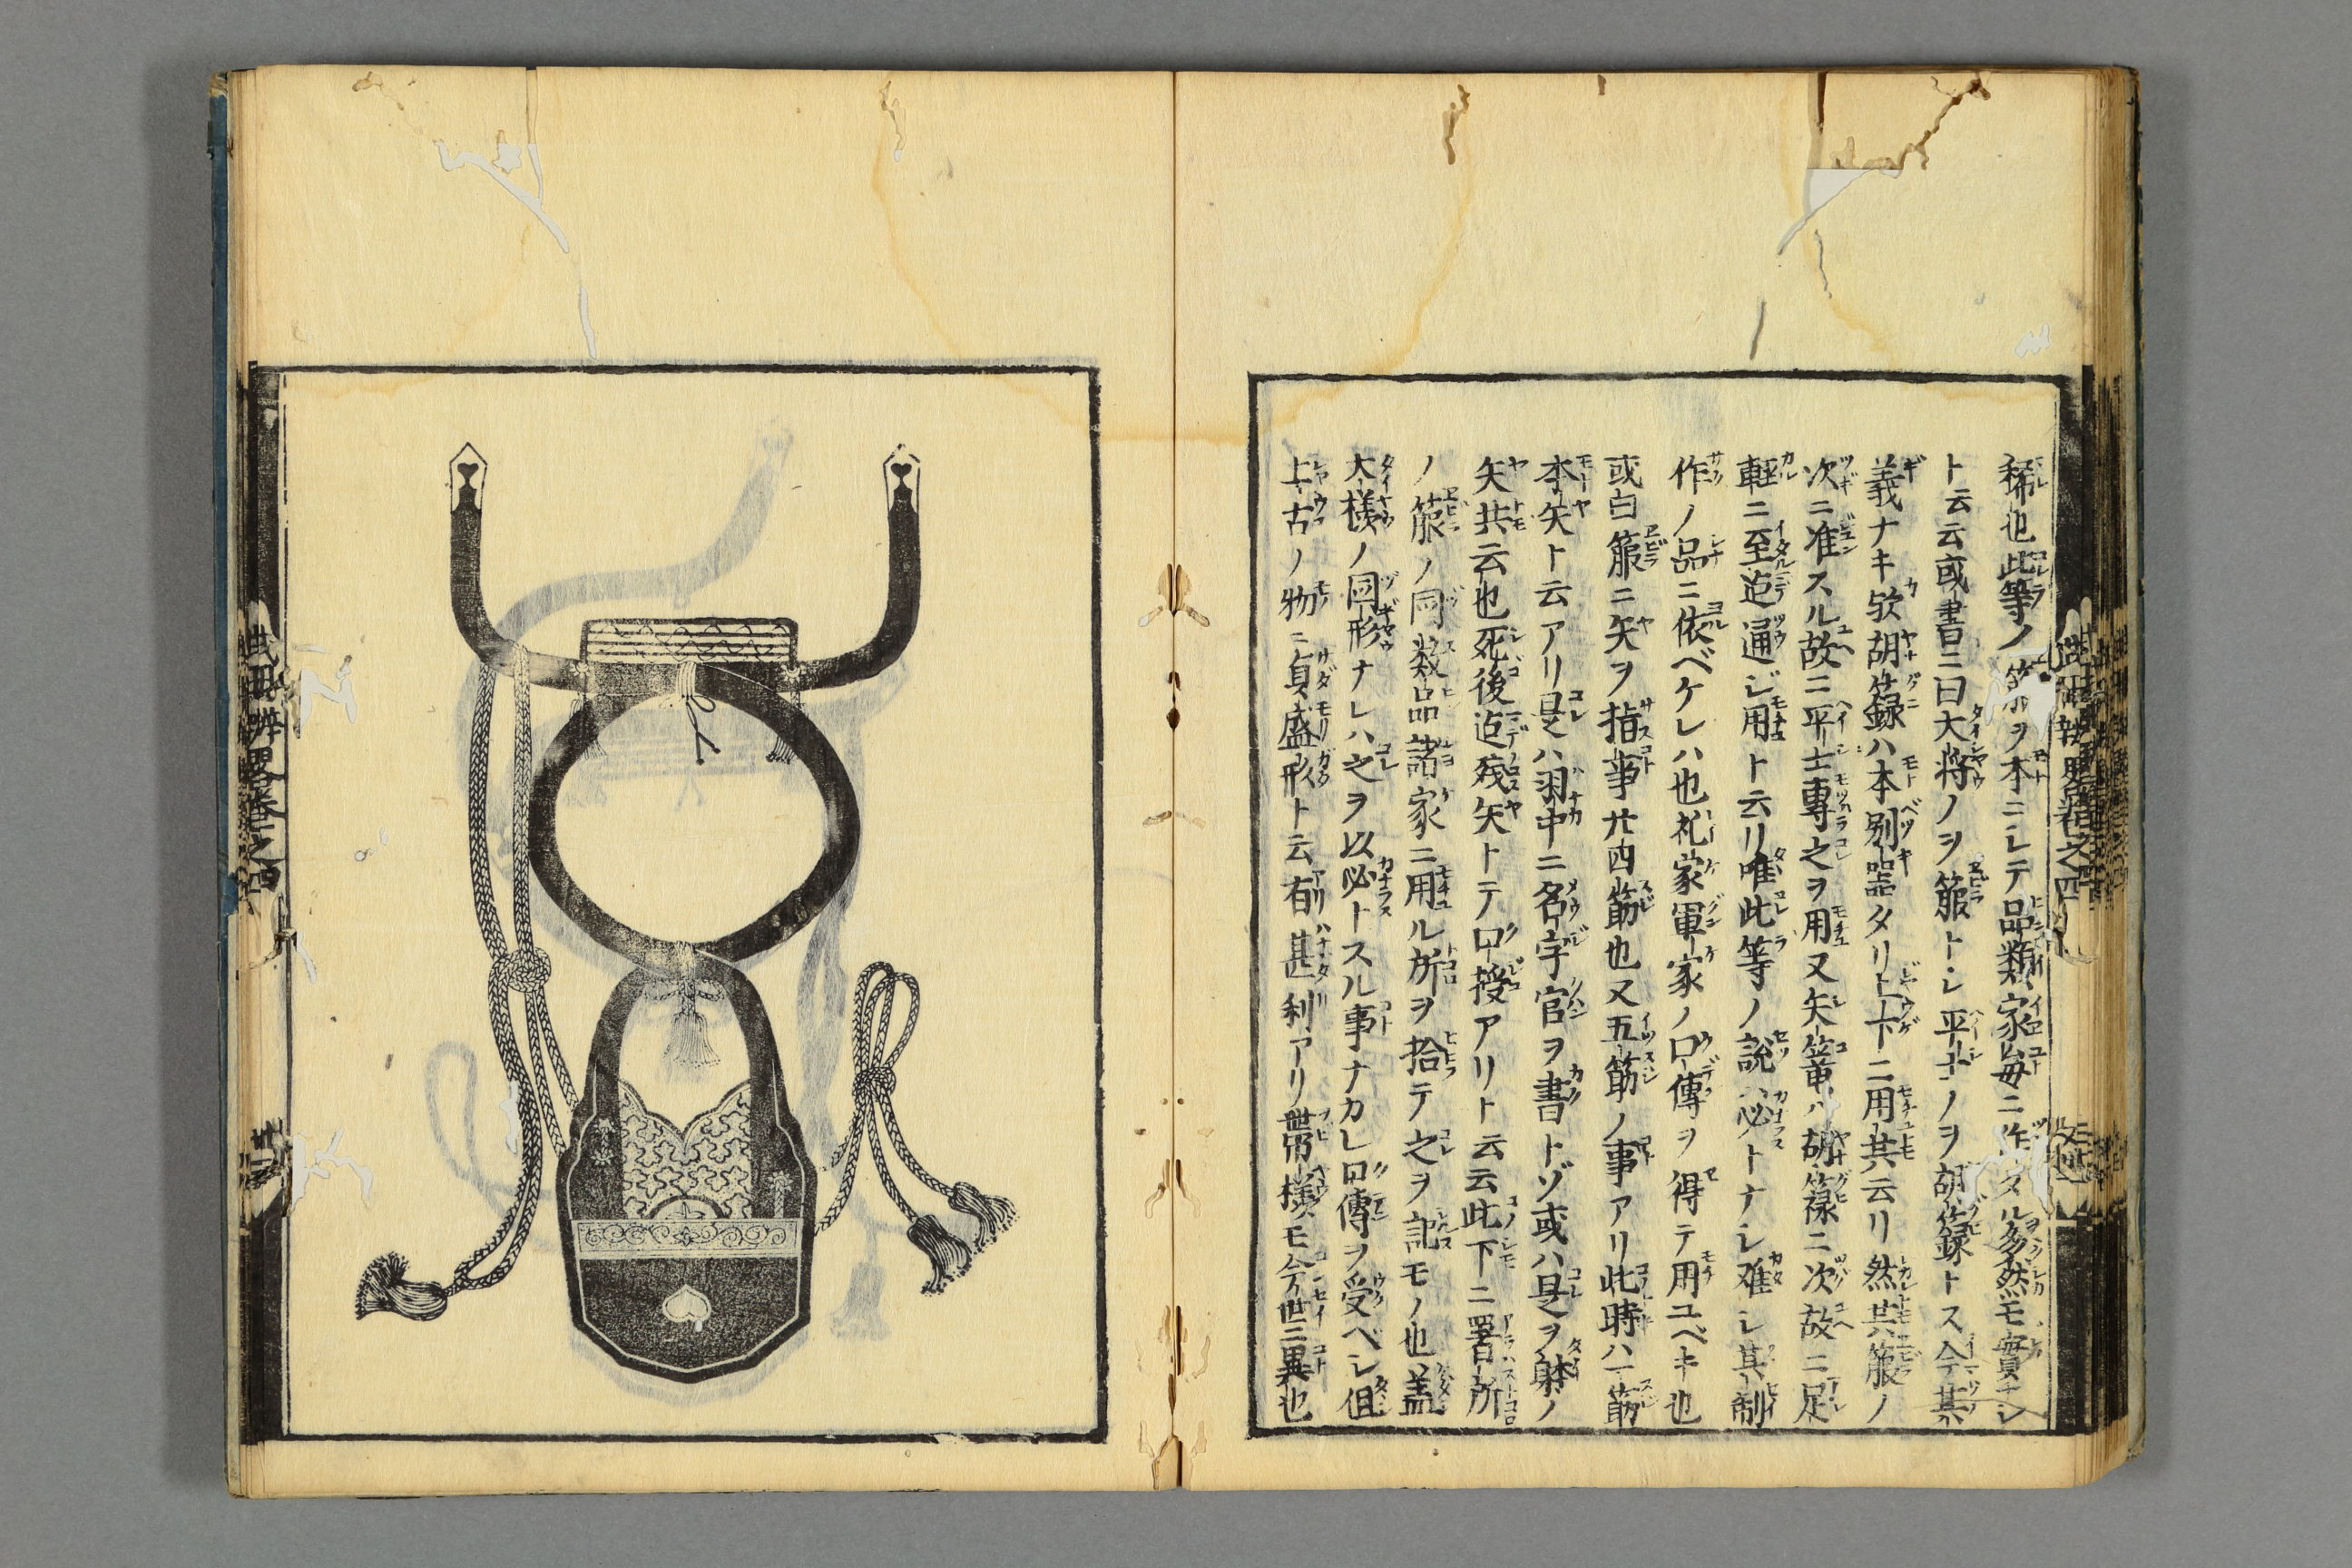 稀也此等ノ箙ヲ本ニシテ品類家毎ニ作タル多然モ實ナシ
ト云云或書ニ曰大將ノヲ箙トシ平士ノヲ胡籙トス今其
義ナキ欤胡籙ハ本別噐タリ上下ニ用共云リ然共箙ノ
次ニ准スル故ニ平士專之ヲ用又矢篭ハ胡籙ニ次故ニ足
軽ニ至迠通ジ用ト云リ唯此等ノ說ハ必トナシ难シ其制
作ノ品ニ依ベケレハ也礼家軍家ノ口傳ヲ得テ用ユベキ也
或白箙ニ矢ヲ指事廿四筋也又五筋ノ事アリ此時ハ一筋
本矢ト云アリ是ハ羽中ニ名字官ヲ書トゾ或ハ是ヲ躰ノ
矢共云也死後迠残矢トテ口授アリト云云此下ニ署所
ノ箙ノ同数品諸家ニ用ル所ヲ拾テ之ヲ記モノ也盖
大様ノ同形ナレハ之ヲ以必トスル事ナカレ口傳ヲ受ベシ但
上古ノ物ニ貞盛形ト云有甚利アリ世帯様モ今世ニ異也
武用辨畧巻之四